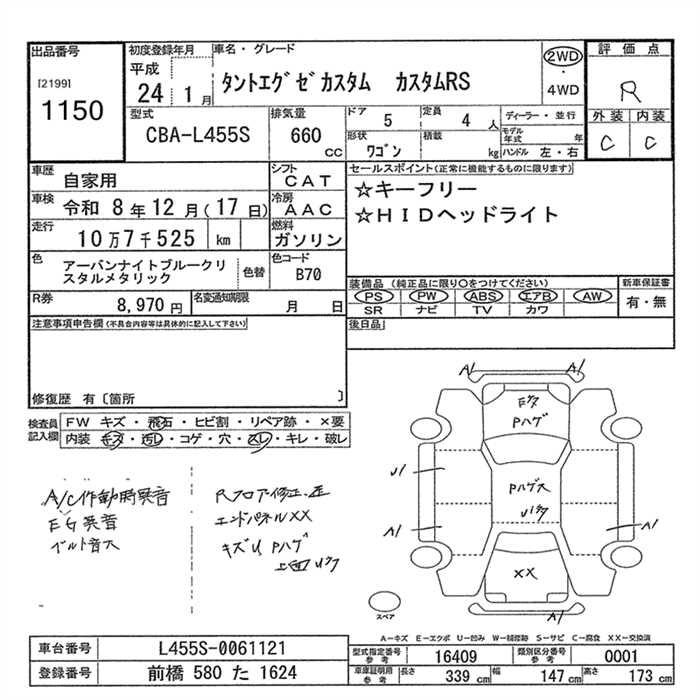 出品番号
[2199]
1150
初度登録年月
平成
24 1 月
車名・グレード
タントエグゼカスタム カスタムRS
2WD
・
4WD
評価点
R
外装 内装
C C
型式
CBA-L455S
排気量
660
cc
ドア 5
定員 4 人
形状 ワゴン
積載 kg
ディーラー・並行
モデル年式 年
ハンドル 左・右
車歴 自家用
シフト CAT
車検 令和 8年12月(17日)
冷房 AAC
走行 10万7千525 km
燃料 ガソリン
色 アーバンナイトブルークリスタルメタリック
色替
色コード B70
R券 8,970 円
名変通知期限 月 日
セールスポイント(正常に機能するものに限ります)
☆キーフリー
☆HIDヘッドライト
装備品(純正品に限り○をつけてください)
PS PW ABS エアB AW
SR ナビ TV カワ
新車保証書
有・無
後日品
注意事項申告欄(不具合内容等は具体的に記入して下さい)
修復歴 有〔箇所 〕
検査員記入欄
FW キズ・飛石・ヒビ割・リペア跡・×要
内装 キズ・汚レ・コゲ・穴・スレ・キレ・破レ
A/C作動時異音
EG異音
ベルト音大
Rフロアー修正.歪
エンドパネルXX
キズU Pハゲ
A1 A1
Pハゲ
U1
A1
A1
XX
A1
スペア
A―キズ E―エクボ U―凹み W―補修跡 S―サビ C―腐食 XX―交換済
車台番号 L455S-0061121
登録番号 前橋 580 た 1624
型式指定番号参考 16409
類別区分番号参考 0001
車庫証明用参考 長さ 339 cm 幅 147 cm 高さ 173 cm